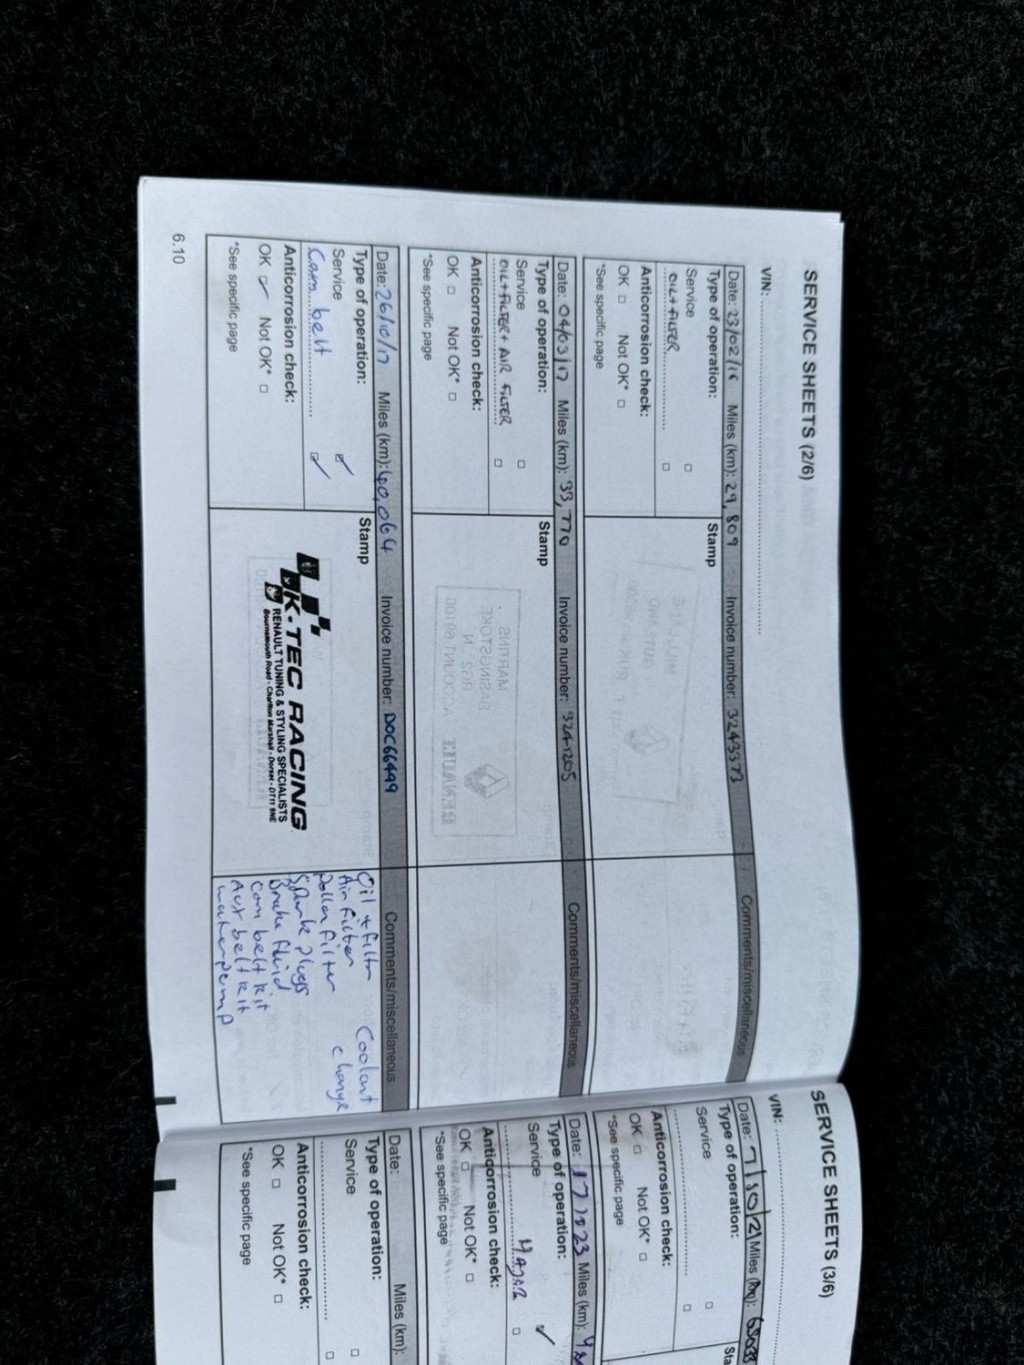 SERVICE SHEETS (2/6)
VIN:
Date: 23/02/16 Miles (km): 29,809 Invoice number: 3243373 Comments/miscellaneous
Type of operation: Stamp
Service
OIL + FILTER
Anticorrosion check:
OK Not OK*
*See specific page
Date: 04/03/17 Miles (km): 33,770 Invoice number: 3241205 Comments/miscellaneous
Type of operation: Stamp
Service
OIL + FILTER + AIR FILTER
Anticorrosion check:
OK Not OK*
*See specific page
MARTINS
BASINGSTOKE
ACCOUNT
RENAULT
Date: 26/10/17 Miles (km): 40,064 Invoice number: DOC66449 Comments/miscellaneous
Type of operation: Stamp
Service
Cam belt
Anticorrosion check:
OK Not OK*
*See specific page
K-TEC RACING
RENAULT TUNING & STYLING SPECIALISTS
Bournemouth Road - Charlton Marshall - Dorset - DT11 9NE
Oil + filtr
Air filter
Pollen filter
Spark plugs
Brake fluid
Cam belt kit
Aux belt kit
waterpump
Coolant
change
6.10
SERVICE SHEETS (3/6)
VIN:
Date: 7/10/21 Miles (km):
Type of operation:
Service
Anticorrosion check:
OK Not OK*
*See specific page
Date: Miles (km):
Type of operation:
Service
MAJOR
Anticorrosion check:
OK Not OK*
*See specific page
Date: Miles (km):
Type of operation:
Service
Anticorrosion check:
OK Not OK*
*See specific page